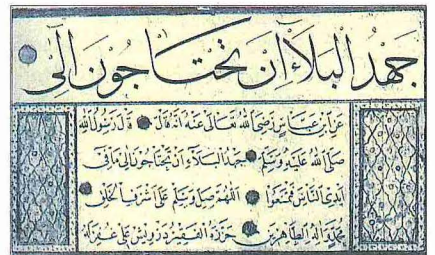 جَهْدُ الْبَلَاءِ اَنْ تَحْتَاجُونَ اِلٰى
عَنِ ابْنِ عَبَّاسٍ رَضِىَ اللهُ تَعَالٰى عَنْهُ اَنَّهُ قَالَ قَالَ رَسُولُ اللهِ
صَلَّى اللهُ عَلَيْهِ وَسَلَّمَ جَهْدُ الْبَلَاءِ اَنْ تَحْتَاجُونَ اِلٰى مَا فِى
اَيْدِى النَّاسِ فَتُمْنَعُوا اَللّٰهُمَّ صَلِّ وَسَلِّمْ عَلٰى اَشْرَفِ الْخَلْقِ
مُحَمَّدٍ وَاٰلِهِ الطَّاهِرِينَ حَرَّرَهُ الْفَقِيرُ دَرْوِيش عَلِى غُفِرَ لَهُ